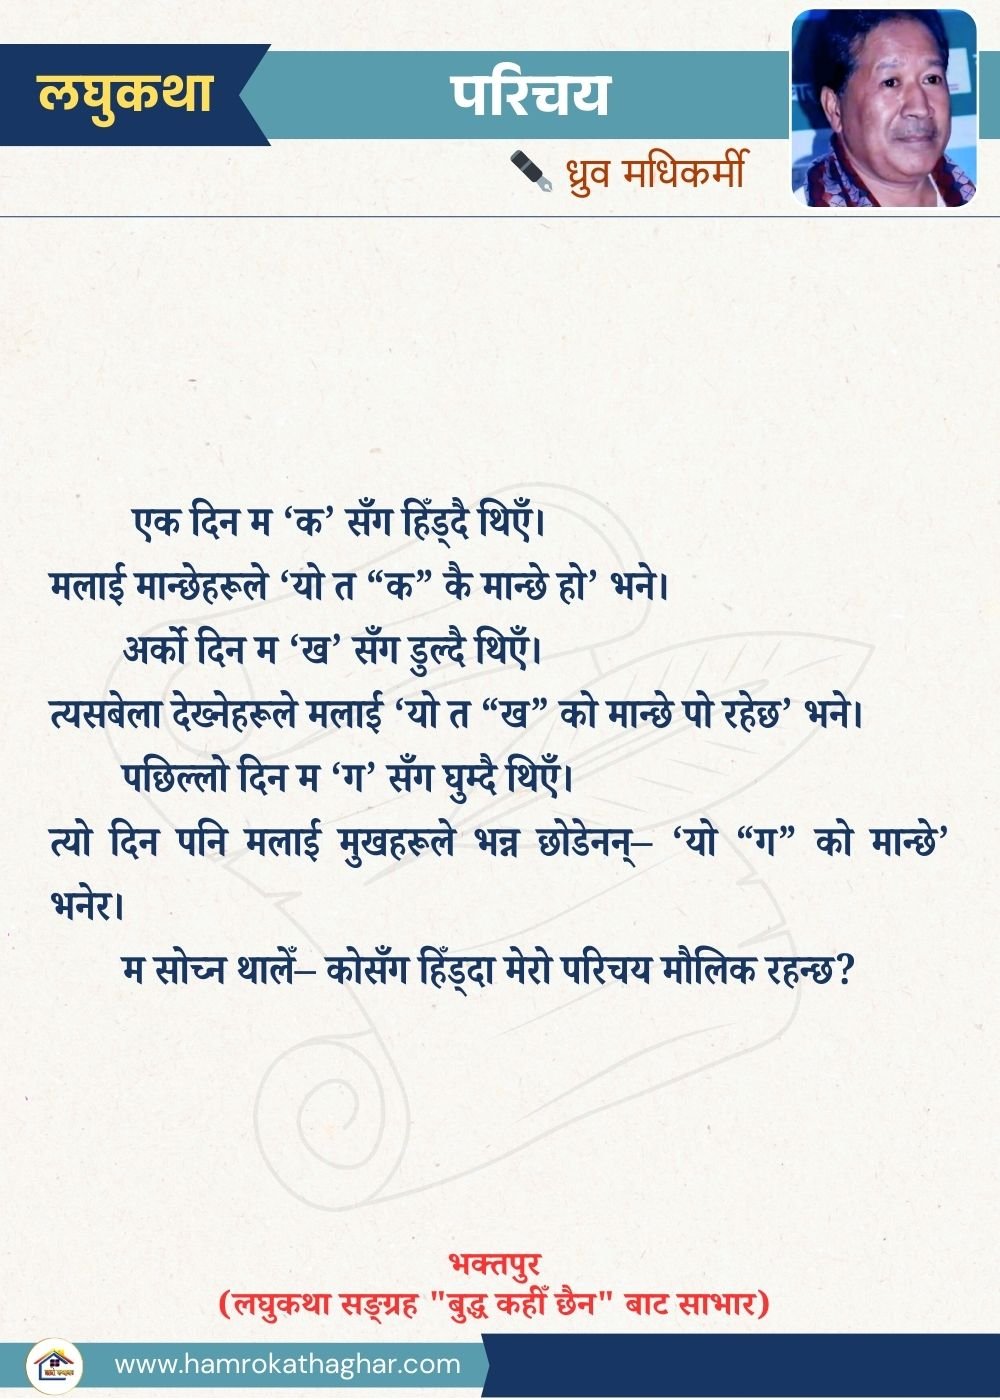 लघुकथा
परिचय
ध्रुव मधिकर्मी
एक दिन म ‘क’ सँग हिँड्दै थिएँ।
मलाई मान्छेहरूले ‘यो त “क” कै मान्छे हो’ भने।
अर्को दिन म ‘ख’ सँग डुल्दै थिएँ।
त्यसबेला देख्नेहरूले मलाई ‘यो त “ख” को मान्छे पो रहेछ’ भने।
पछिल्लो दिन म ‘ग’ सँग घुम्दै थिएँ।
त्यो दिन पनि मलाई मुखहरूले भन्न छोडेनन्– ‘यो “ग” को मान्छे’
भनेर।
म सोच्न थालेँ– कोसँग हिँड्दा मेरो परिचय मौलिक रहन्छ?
भक्तपुर
(लघुकथा सङ्ग्रह "बुद्ध कहीँ छैन" बाट साभार)
www.hamrokathaghar.com